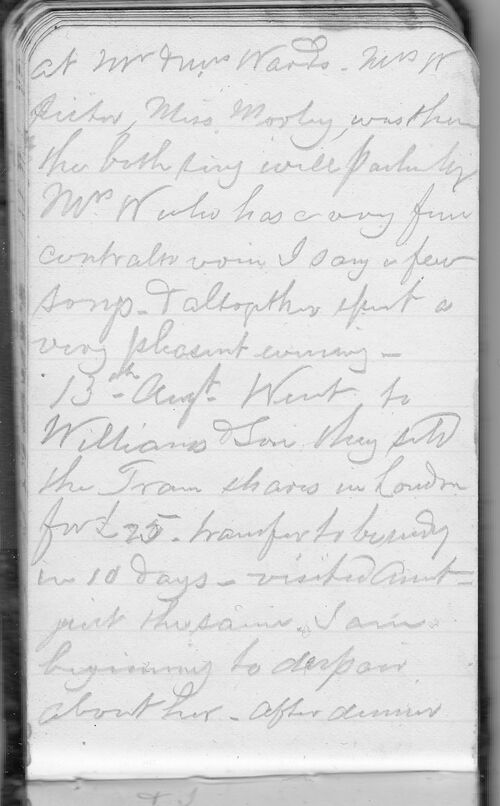 at Mr & Mrs Wards. Mrs W
sister, Miss Morley, was there
the both sing well partculy
Mrs W who has a very fine
contralto voice I sang a few
songs. & altogether spent a
very pleasent evening –
13th Augt. Went to
Williams & Son they sold
the Tram shares in London
for £25. transfer to be ready
in 10 days – visited Aunt –
just the same. I am
beginning to despair
about her – after dinner